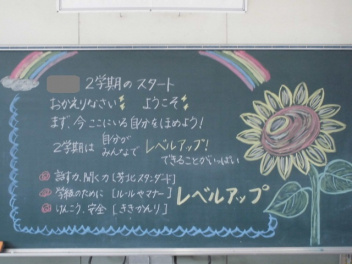 2学期の スタート
おかえりなさい ようこそ
まず、今ここにいる自分をほめよう!
2学期は 自分が みんなで レベルアップ!
できることがいっぱい
話す力、聞く力[芳北スタンダード]
学級のために [ルールやマナー]
けんこう、安全 [ききかんり]
レベルアップ